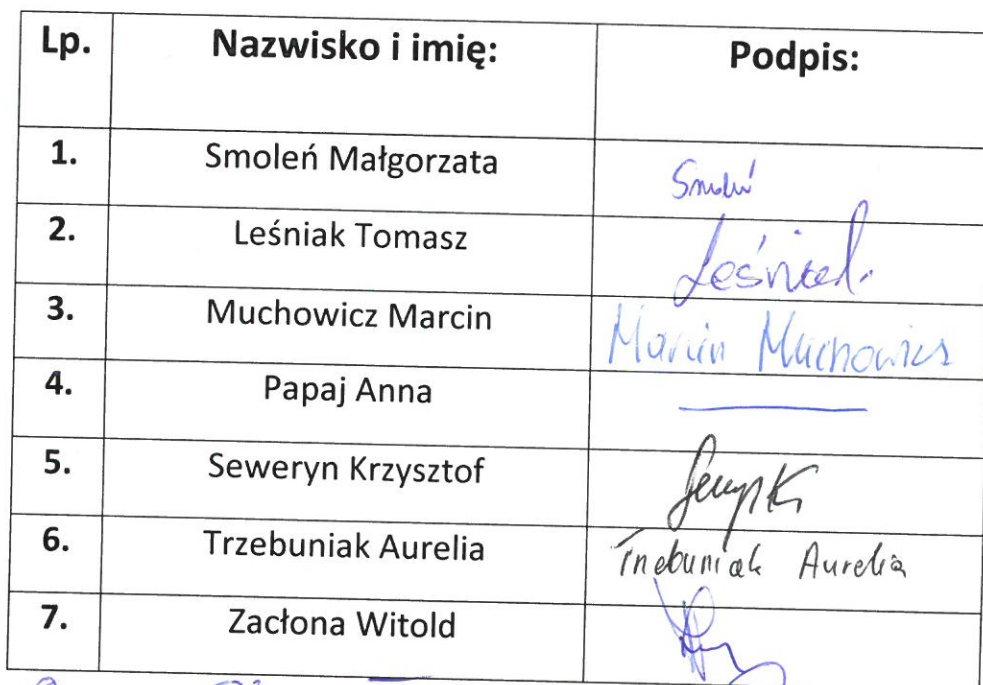 Lp. Nazwisko i imię: Podpis:
1. Smoleń Małgorzata Smoleń
2. Leśniak Tomasz Leśniak
3. Muchowicz Marcin Marcin Muchowicz
4. Papaj Anna
5. Seweryn Krzysztof
6. Trzebuniak Aurelia Trzebuniak Aurelia
7. Zacłona Witold